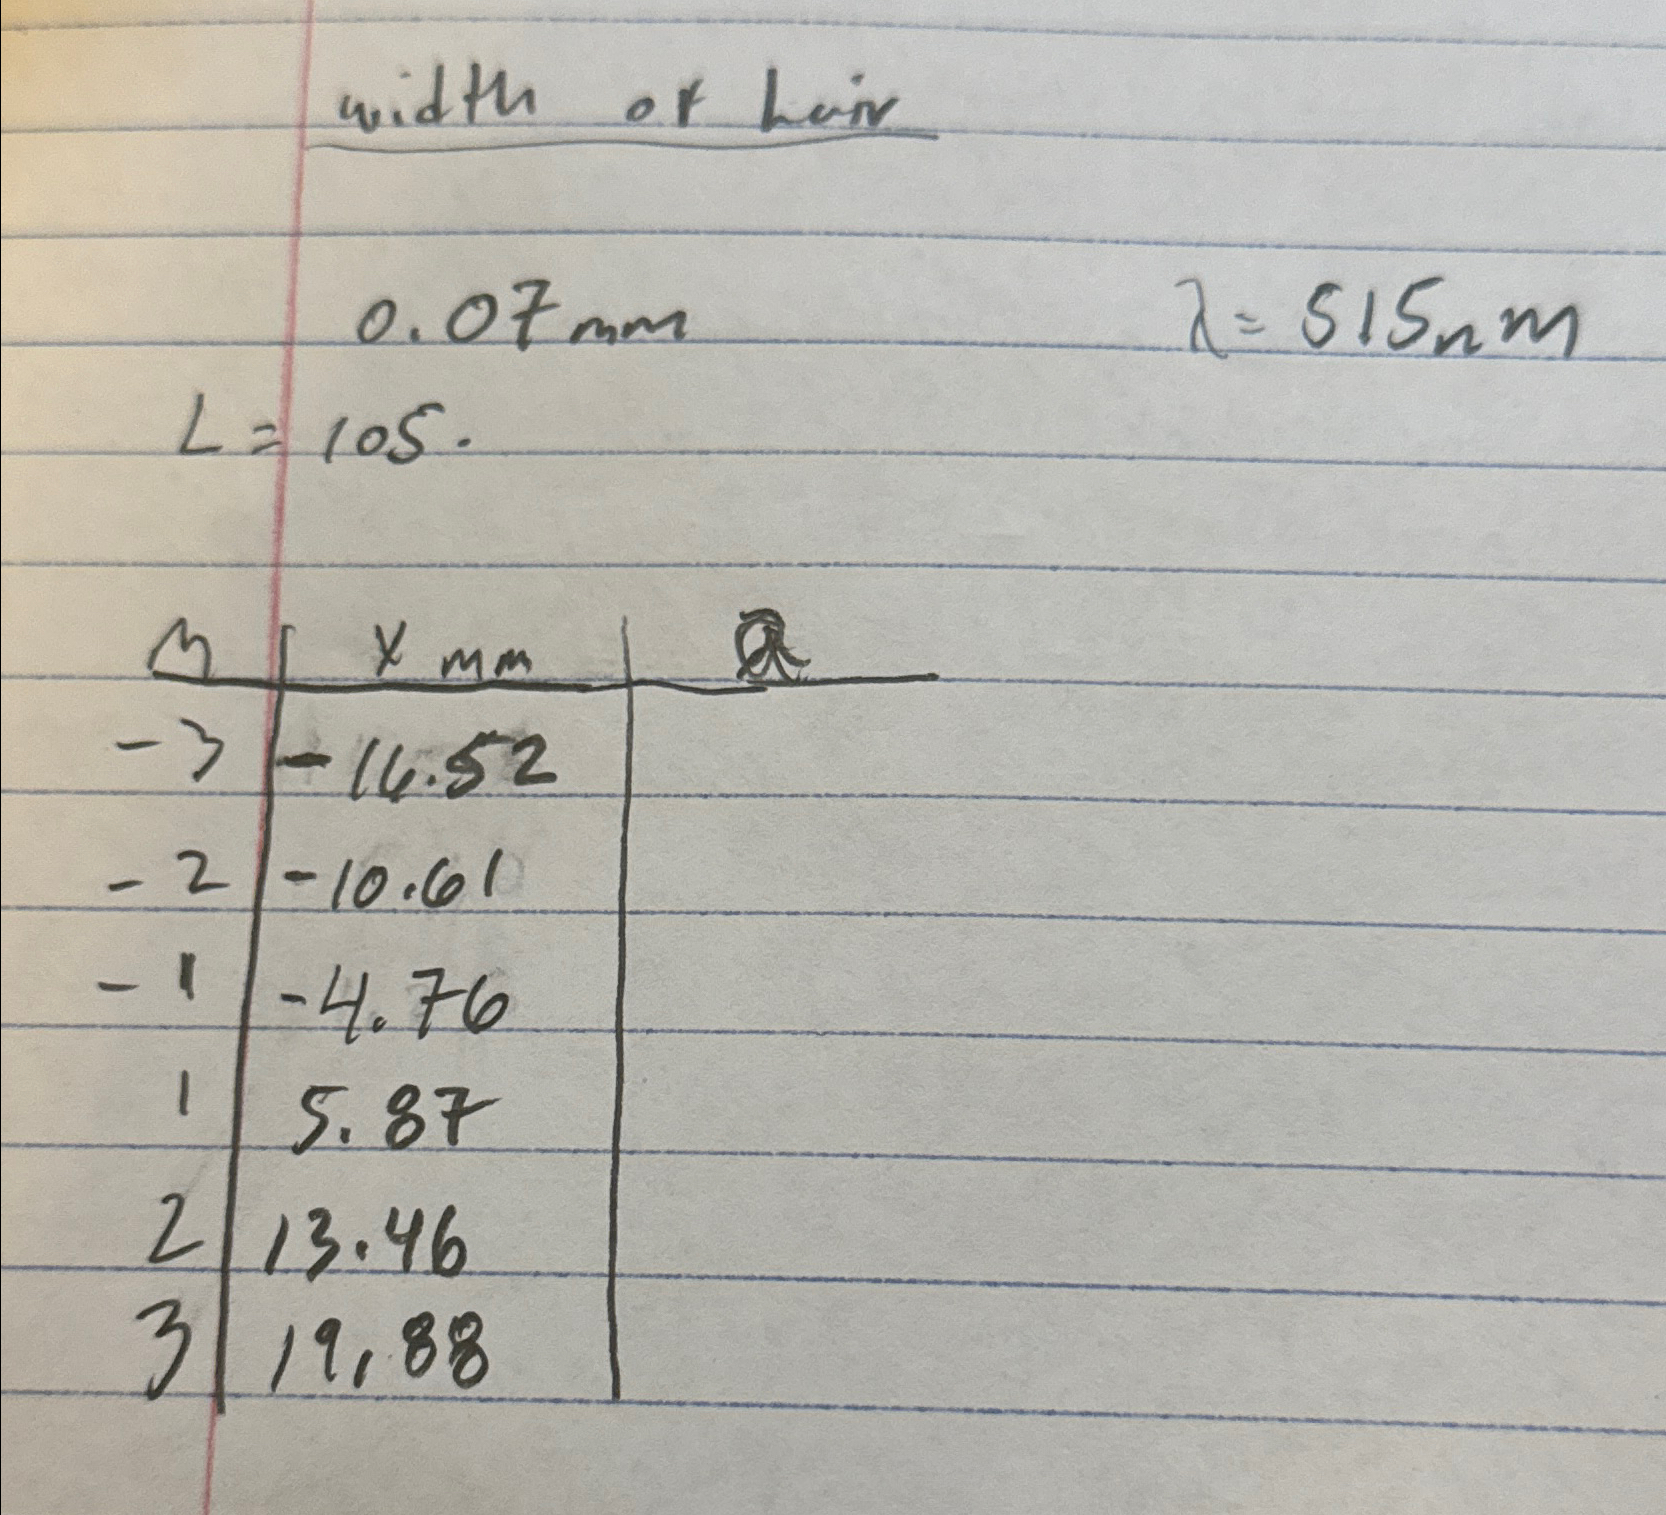 width of hair
0.07mm λ= 515nm
L= 105.
m x mm a
-3 -16.52
-2 -10.61
-1 -4.76
1 5.87
2 13.46
3 19.88